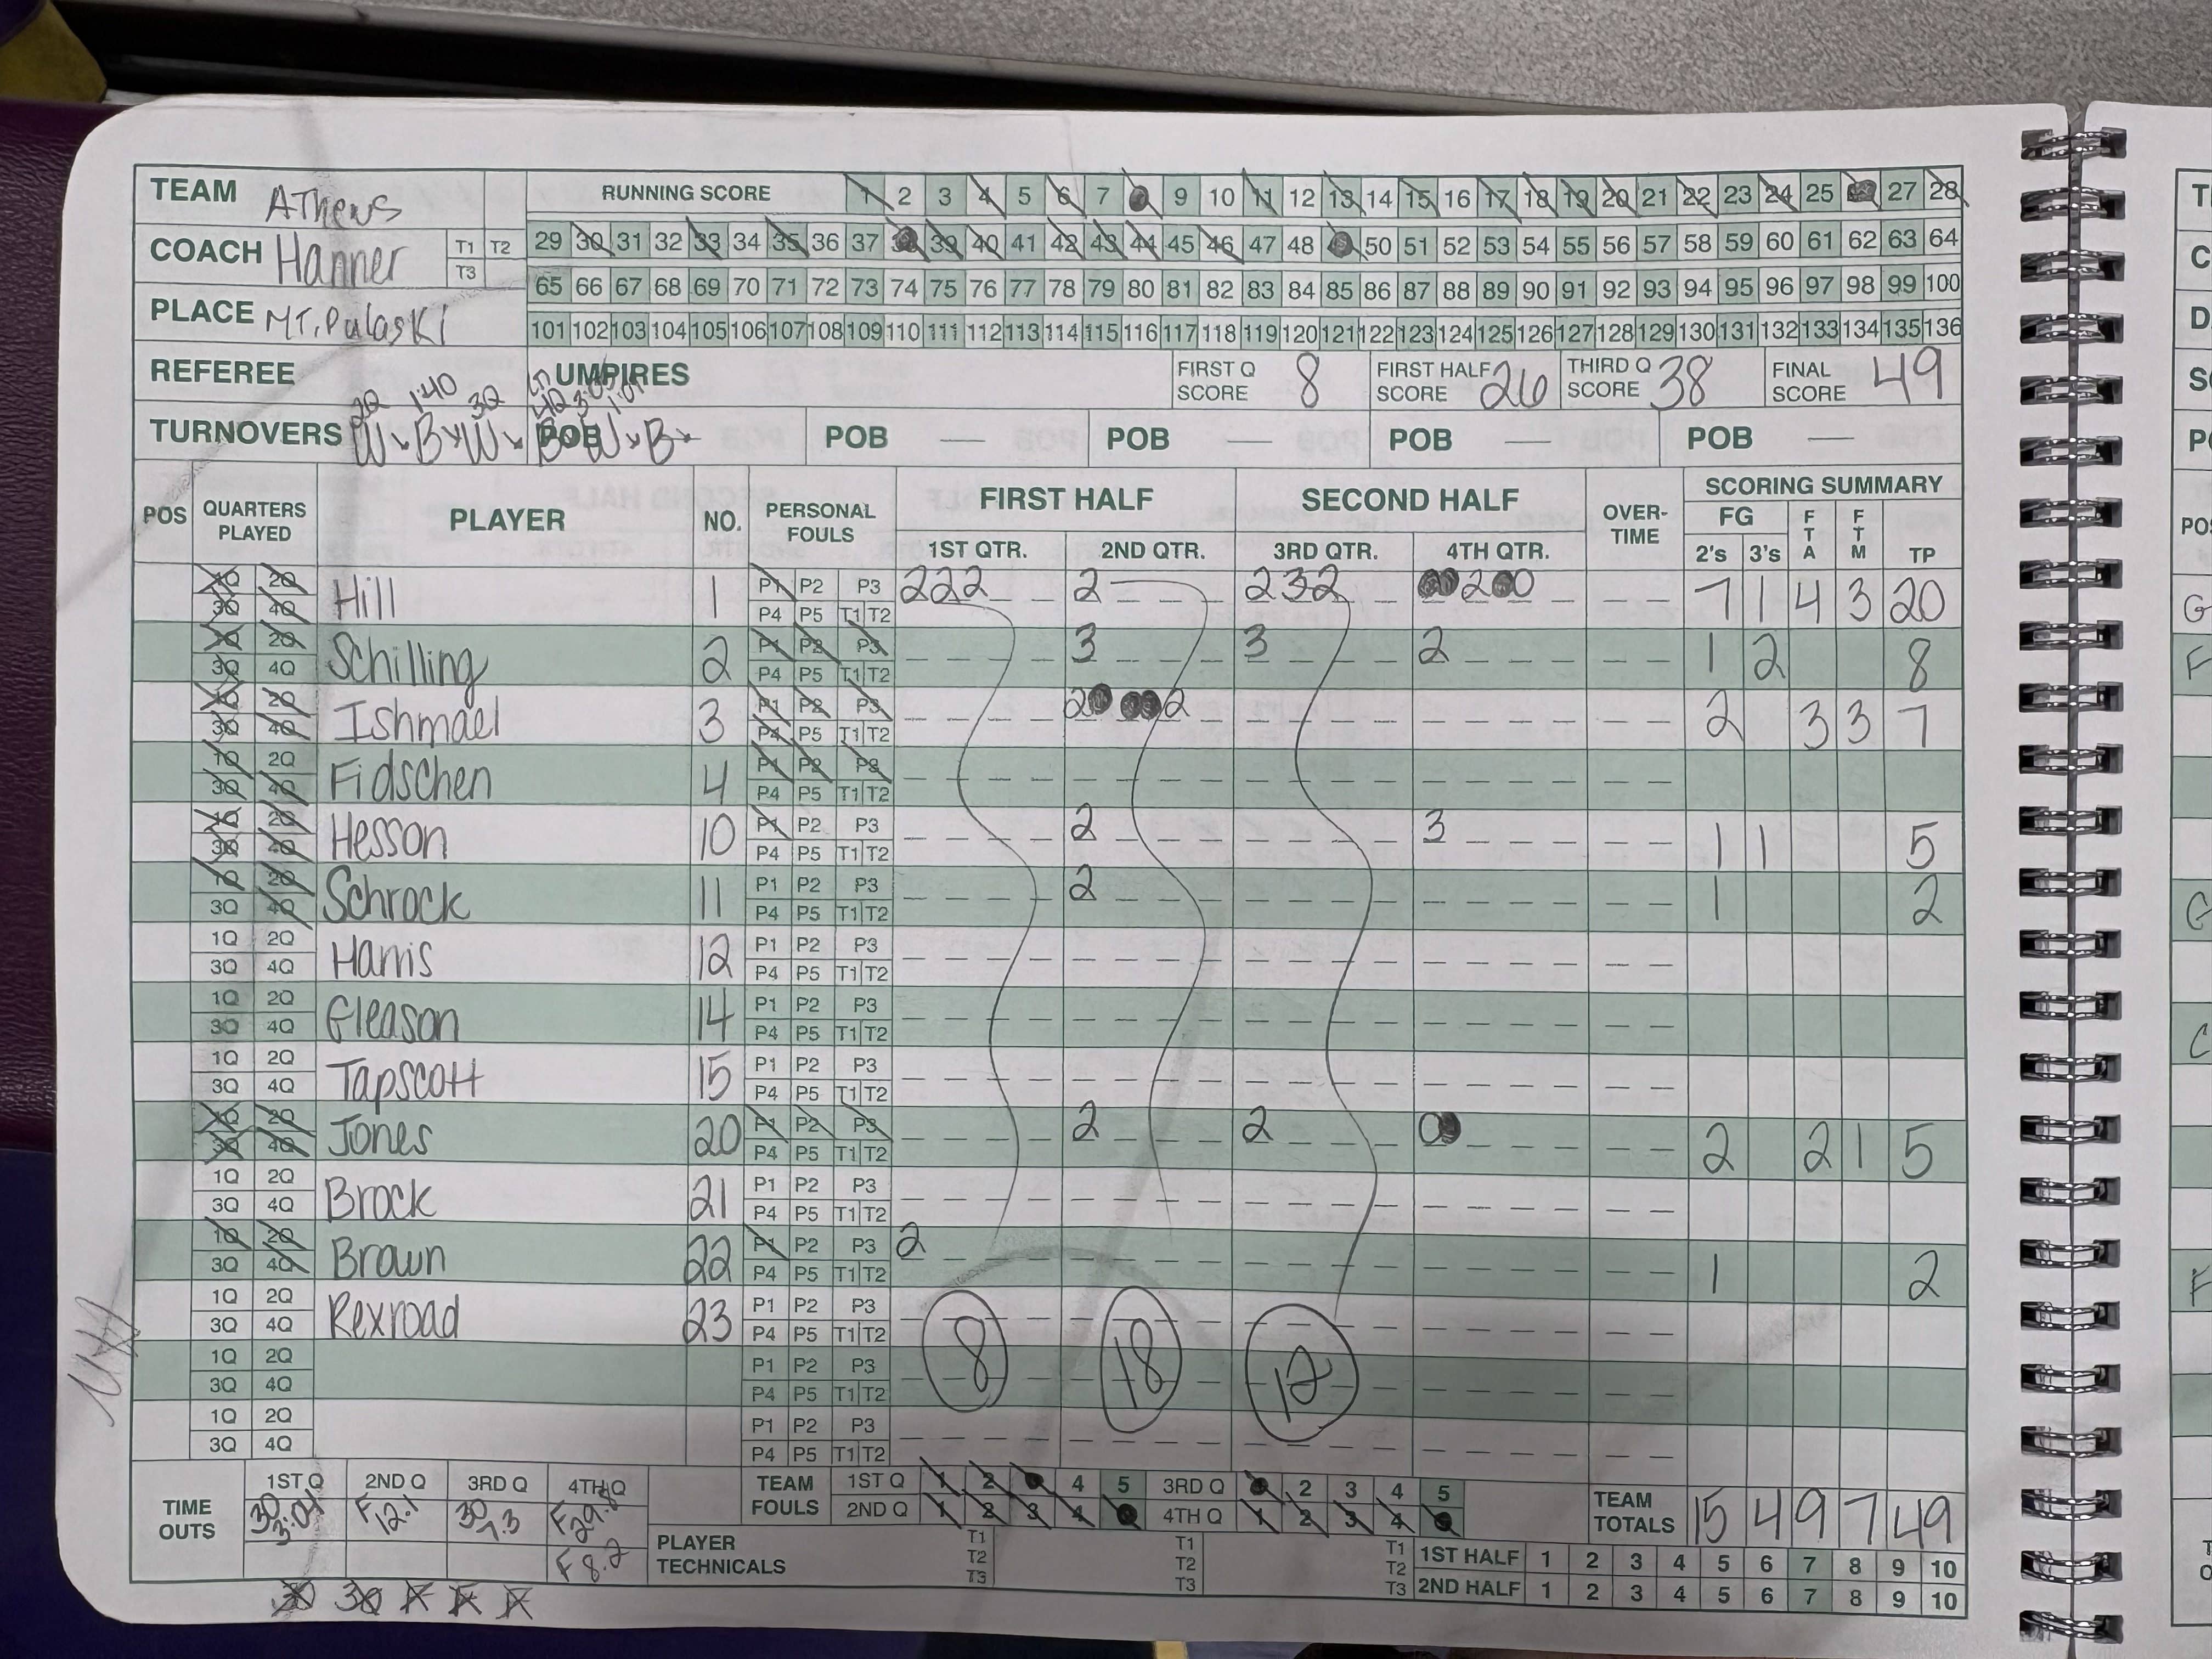 TEAM Athens RUNNING SCORE 1 2 3 4 5 6 7 9 10 11 12 13 14 15 16 17 18 19 20 21 22 23 24 25 27 28
COACH Hanner T1 T2 T3 29 30 31 32 33 34 35 36 37 39 40 41 42 43 44 45 46 47 48 50 51 52 53 54 55 56 57 58 59 60 61 62 63 64
65 66 67 68 69 70 71 72 73 74 75 76 77 78 79 80 81 82 83 84 85 86 87 88 89 90 91 92 93 94 95 96 97 98 99 100
PLACE MT. Pulaski 101 102 103 104 105 106 107 108 109 110 111 112 113 114 115 116 117 118 119 120 121 122 123 124 125 126 127 128 129 130 131 132 133 134 135 136
REFEREE UMPIRES FIRST Q SCORE 8 FIRST HALF SCORE 26 THIRD Q SCORE 38 FINAL SCORE 49
2Q 1:40 3Q 4Q
TURNOVERS W B W POB B W B POB — POB — POB — POB —
POS QUARTERS PLAYED PLAYER NO. PERSONAL FOULS FIRST HALF SECOND HALF OVER-TIME SCORING SUMMARY
1ST QTR. 2ND QTR. 3RD QTR. 4TH QTR. FG 2's 3's FTA FTM TP
1Q 2Q 3Q 4Q Hill 1 P1 P2 P3 P4 P5 T1 T2 222 2 232 20 7 1 4 3 20
1Q 2Q 3Q 4Q Schilling 2 P1 P2 P3 P4 P5 T1 T2 3 3 2 1 2 8
1Q 2Q 3Q 4Q Ishmael 3 P1 P2 P3 P4 P5 T1 T2 2 2 2 3 3 7
1Q 2Q 3Q 4Q Fidschen 4 P1 P2 P3 P4 P5 T1 T2
1Q 2Q 3Q 4Q Hesson 10 P1 P2 P3 P4 P5 T1 T2 2 3 1 1 5
1Q 2Q 3Q 4Q Schrock 11 P1 P2 P3 P4 P5 T1 T2 2 1 2
1Q 2Q 3Q 4Q Harris 12 P1 P2 P3 P4 P5 T1 T2
1Q 2Q 3Q 4Q Gleason 14 P1 P2 P3 P4 P5 T1 T2
1Q 2Q 3Q 4Q Tapscott 15 P1 P2 P3 P4 P5 T1 T2
1Q 2Q 3Q 4Q Jones 20 P1 P2 P3 P4 P5 T1 T2 2 2 0 2 2 1 5
1Q 2Q 3Q 4Q Brock 21 P1 P2 P3 P4 P5 T1 T2
1Q 2Q 3Q 4Q Brown 22 P1 P2 P3 P4 P5 T1 T2 2 1 2
1Q 2Q 3Q 4Q Rexroad 23 P1 P2 P3 P4 P5 T1 T2
1Q 2Q 3Q 4Q P1 P2 P3 P4 P5 T1 T2 8 18 12
1Q 2Q 3Q 4Q P1 P2 P3 P4 P5 T1 T2
TIME OUTS 1ST Q 2ND Q 3RD Q 4TH Q TEAM FOULS 1ST Q 1 2 4 5 3RD Q 2 3 4 5 TEAM TOTALS 15 4 9 7 49
30 3:01 F 12.1 30 7.3 F 29.8 2ND Q 1 2 3 4 4TH Q 1 2 3 4
F 8.2 PLAYER TECHNICALS T1 T2 T3 T1 T2 T3 T1 T2 T3 1ST HALF 1 2 3 4 5 6 7 8 9 10
2ND HALF 1 2 3 4 5 6 7 8 9 10
30 30 F F F